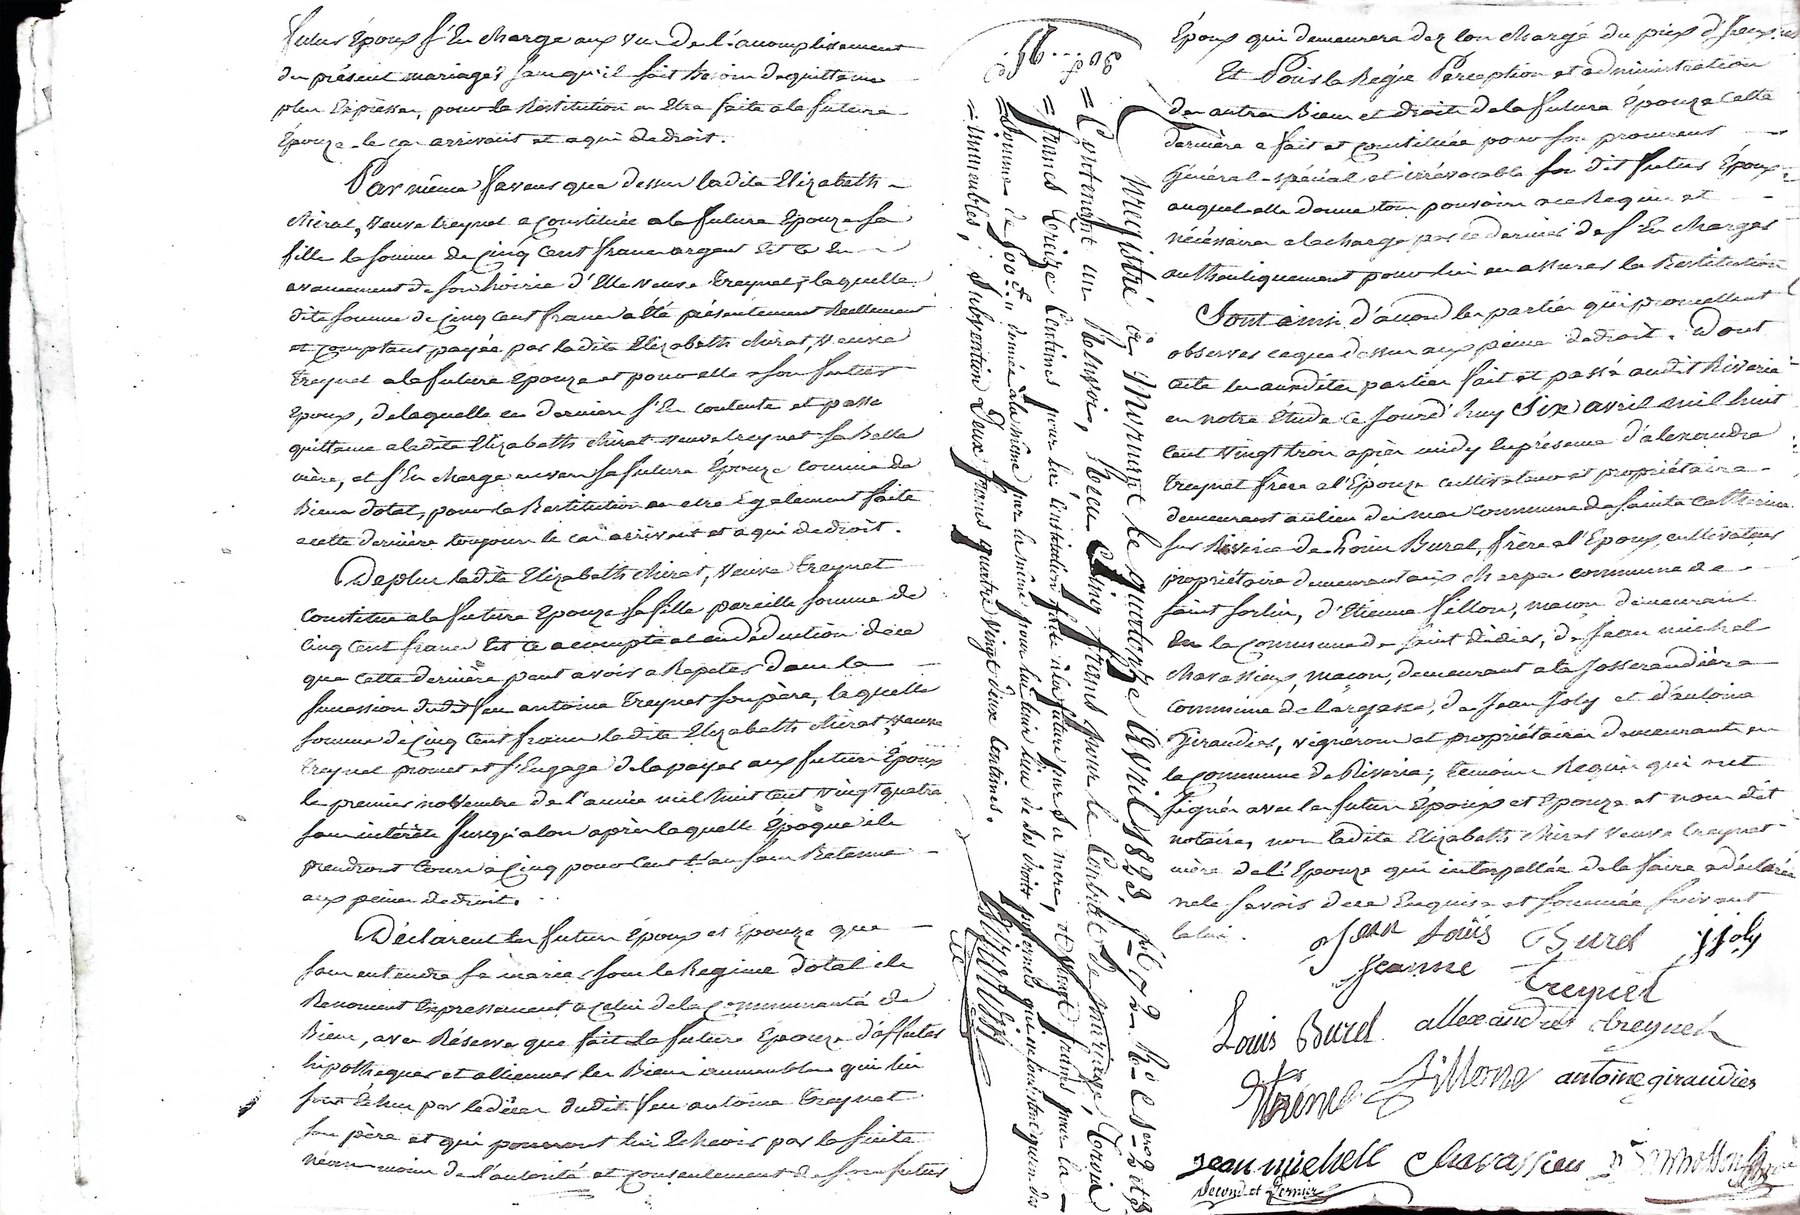 futurs Époux s'En charge aux vu de l'acomplissement
du présent mariage, sans qu'il soit besoin de quittance
plus Expresse, pour la Restitution en être faite a la future
Épouze le cas arrivant et a qui de droit.
Par même faveur que dessus ladite Elizabeth
chirat, veuve treynet a constituée a la future Epouze sa
fille la somme de Cinq Cent francs argent Et ce En
avancement de son hoirie d'Elle veuve treynet, laquelle
dite somme de Cinq Cent francs a été présentement Réellement
et comptant payée par ladite Elizabeth chirat, veuve
treynet a la future Epouze et pour elle a son futur
Epoux, de laquelle ce dernier s'En contente et passe
quittance a ladite Elizabeth chirat veuve treynet sa Belle
mère, et s'En charge envers sa future Épouze comme de
Biens dotal, pour la Restitution en etre Egalement faite
a cette dernière toujours le cas arrivant et a qui de droit.
De plus ladite Elizabeth chirat, veuve treynet
Constitue a la future Epouze sa fille pareille somme de
Cinq Cent francs Et ce a compte et en déduction de ce
que cette dernière peut avoir a Repeter dans la
succession dudit feu antoine treynet son père, laquelle
somme de Cinq Cent francs ladite Elizabeth chirat, veuve
treynet promet et s'Engage de la payer aux futurs Époux
le premier novembre de l'année mil huit cent vingt quatre
sans intérêts Jusqu'alors après laquelle Epoque ils
prendront Cours a Cinq pour Cent l'an sans Retenue
aux peines de droit.
Déclarent les futurs Époux et Epouze que
sans entendre se marier sous le Regime dotal ils
Renoncent Expressement a celui de la Communauté de
Biens, avec Réserve que fait la future Epouze d'affecter
hipothequer et alliener les Biens immeubles qui lui
sont Échus par le décès dudit feu antoine treynet
son père et qui pourront lui Echeoir par la suite
néanmoins de l'autorité et consentement de son futur
Enregistré à Mornant le quatorze Avril 1823, f.°
Contenant un Renvoi, Recu Cinq francs pour le Contrat de mariage, Treize
francs treize Centimes pour la Constitution faite à la future par sa mere, et vingt francs pour la
somme de 500 f. donnée à la même par la même pour lui tenir lieu de ses droits paternels qui ne consistent qu'en des
immeubles; Subvention Deux francs quatre vingt deux Centimes.
Époux qui demeurera dez lors chargé du prix d'iceux.
Et Pour la Regie Perception et administration
des autres Biens et droits de la future Épouze Cette
dernière a fait et constituée pour son procureur
Général spécial et irrévocable son dit futur Époux,
auquel elle donne tous pouvoirs a ce Requis et
nécéssaires a la charge par ce dernier de s'En charger
authentiquement pour lui en assurer la Restitution
Sont ainsi d'accord les parties qui promettent
observer ce que dessus aux peines de droit. Dont
acte les ausdites parties fait et passé audit Riverie
en notre Étude ce Jourd'huy Six avril mil huit
Cent vingt trois après midy En présence d'alexandre
treynet frère a l'Epouze cultivateur et propriétaire
demeurant au lieu du mas commune de sainte catherine
sur Riverie de Louis Burel, frère a l'Epoux, cultivateur
propriétaire demeurant aux cherpes commune de
saint sorlin, d'Etienne fillon, maçon demeurant
En la Commune de saint didier, de Jean michel
chavassieux, maçon, demeurant a la Josserandière
commune de Larajasse, de Jean Joly et d'antoine
Giraudier, vignérons et propriétaires demeurants en
la commune de Riverie, témoins Requis qui ont
signés avec les futurs Époux et Epouze et nous dit
notaire, non ladite Elizabeth chirat veuve treynet
mère de l'Epouze qui interpellée de le faire a déclarée
ne le savoir de ce Enquise et sommée suivant
la loi.
Jean Louis Burel JJoly
Jeanne treynet
Louis Burel allexandre treynet
Etiene fillone antoine giraudier
Jean michell chavassieu
second et dernier